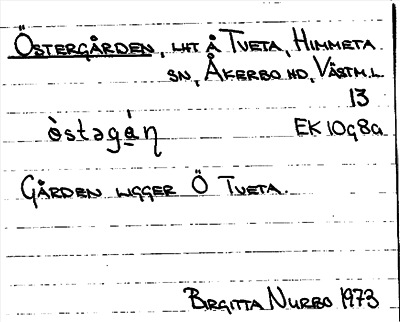 ÖSTERGÅRDEN, LHT Å TVETA, HIMMETA
SN, ÅKERBO HD, VÄSTM.L
13
òstəgán̥ EK 10g8a
GÅRDEN LIGGER Ö TVETA.
BIRGITTA NURBO 1973